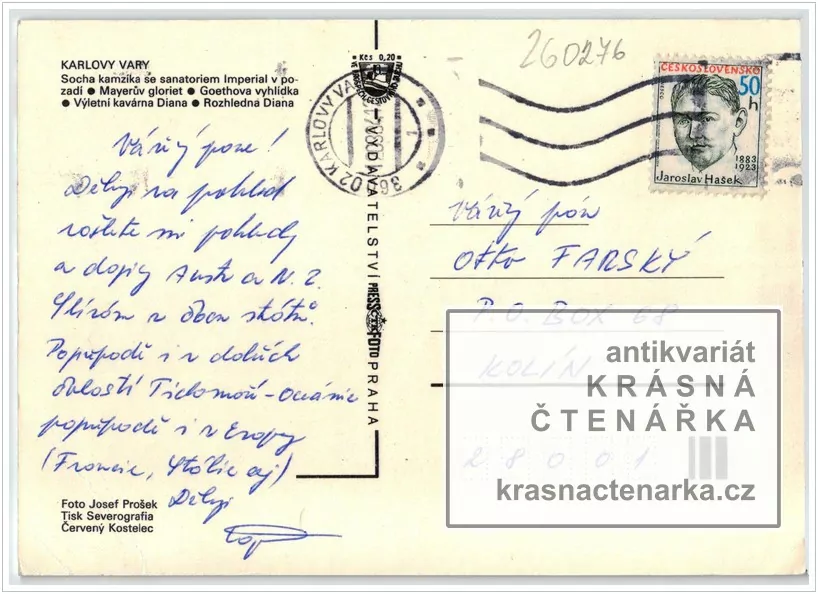 KARLOVY VARY
Socha kamzíka se sanatoriem Imperial v po-
zadí ● Mayerův gloriet ● Goethova vyhlídka
● Výletní kavárna Diana ● Rozhledna Diana
Vážený pane!
Děkuji za pohled
pohledy
a dopisy Austr a N. Z.
v obou států.
Popřípadě i v dalších
oblastí Tichomoří - Oceánie
popřípadě i v Evropy
(Francie, Itálie aj)
Děkuji
Foto Josef Prošek
Tisk Severografia
Červený Kostelec
Kčs 0,20
VYDAVATELSTVÍ PRESSFOTO PRAHA
KARLOVY VARY 1
260276
ČESKOSLOVENSKO
50 h
1883
1923
Jaroslav Hašek
Vážený pán
Otto FARSKÝ
P.O. BOX 68
KOLÍN
28001
antikvariát
KRÁSNÁ
ČTENÁŘKA
krasnactenarka.cz